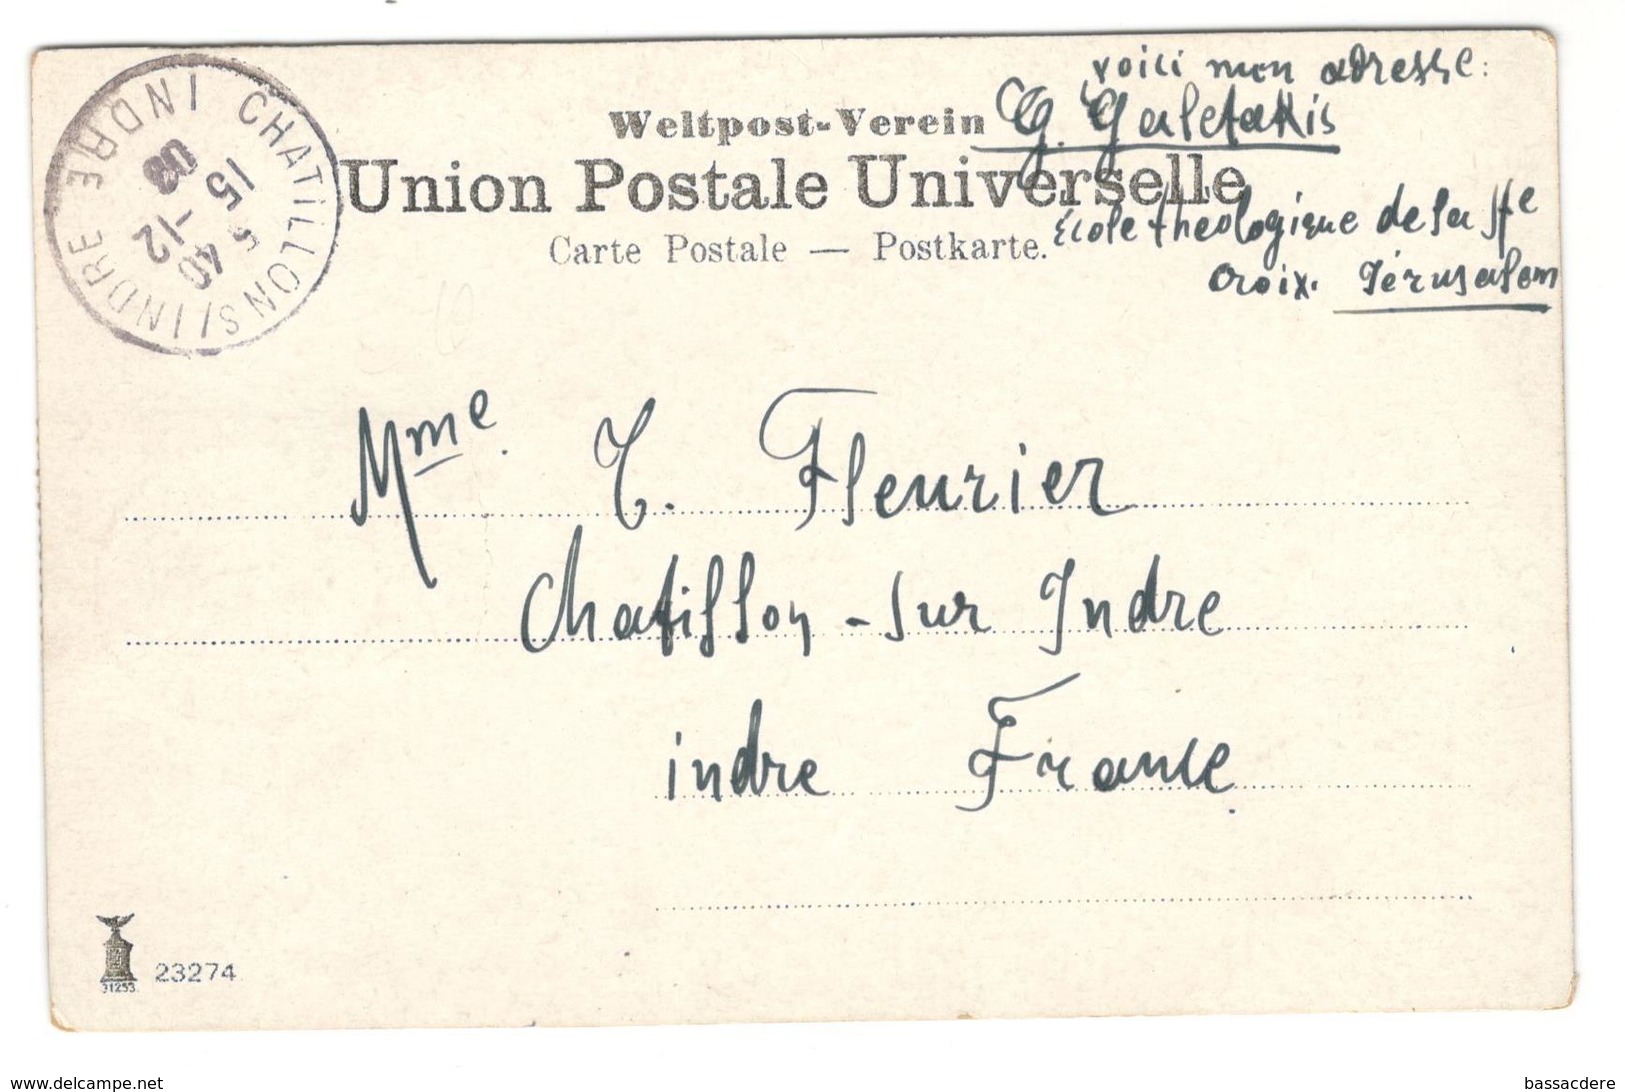 voici mon adresse:
Weltpost-Verein G. Galetakis
Union Postale Universelle
Carte Postale — Postkarte. École theologique de la Ste
Croix. Jérusalem
CHATILLON S/INDRE INDRE
15 -12 08
5 40
Mme T. Fleurier
Chatillon-sur Indre
indre France
31253
23274
www.delcampe.net
bassacdere